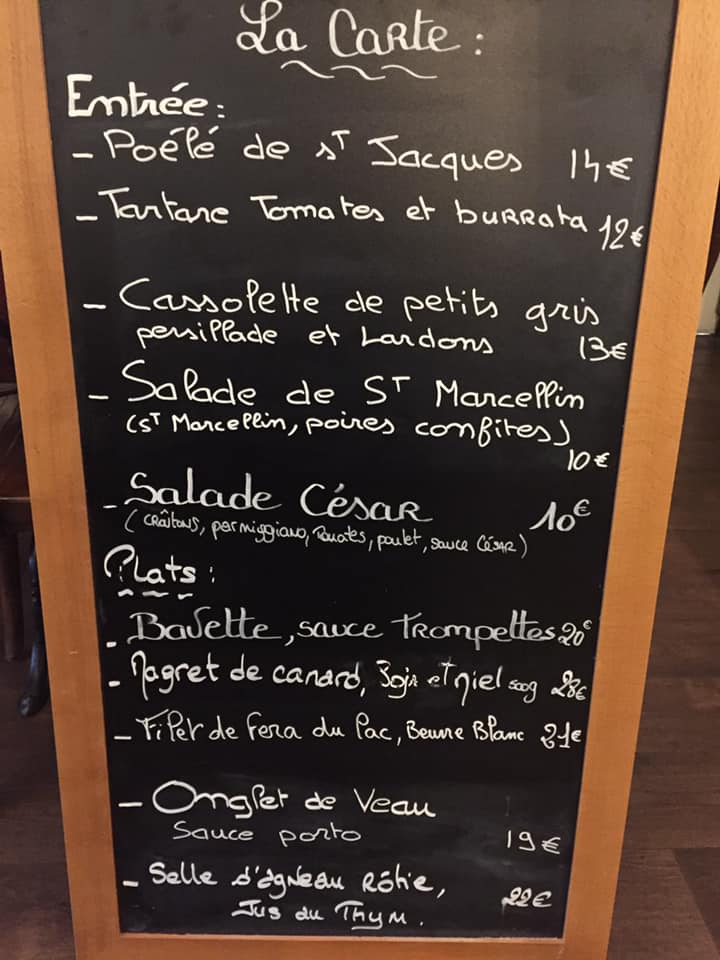 La Carte :
Entrée :
- Poélé de sT Jacques 14€
- Tartare Tomates et burrata 12€
- Cassolette de petits gris
persillade et Lardons 13€
- Salade de ST Marcellin
(sT Marcellin, poires confites)
10€
- Salade César 10€
(crâutons, parmiggiano, Tomates, poulet, sauce César)
Plats :
- Bavette, sauce Trompettes 20€
- Magret de canard, Soja et Miel 500g 28€
- Filet de Fera du Lac, Beurre Blanc 21€
- Onglet de Veau
Sauce porto 19€
- Selle d'agneau Rôtie, 22€
Jus au Thym.